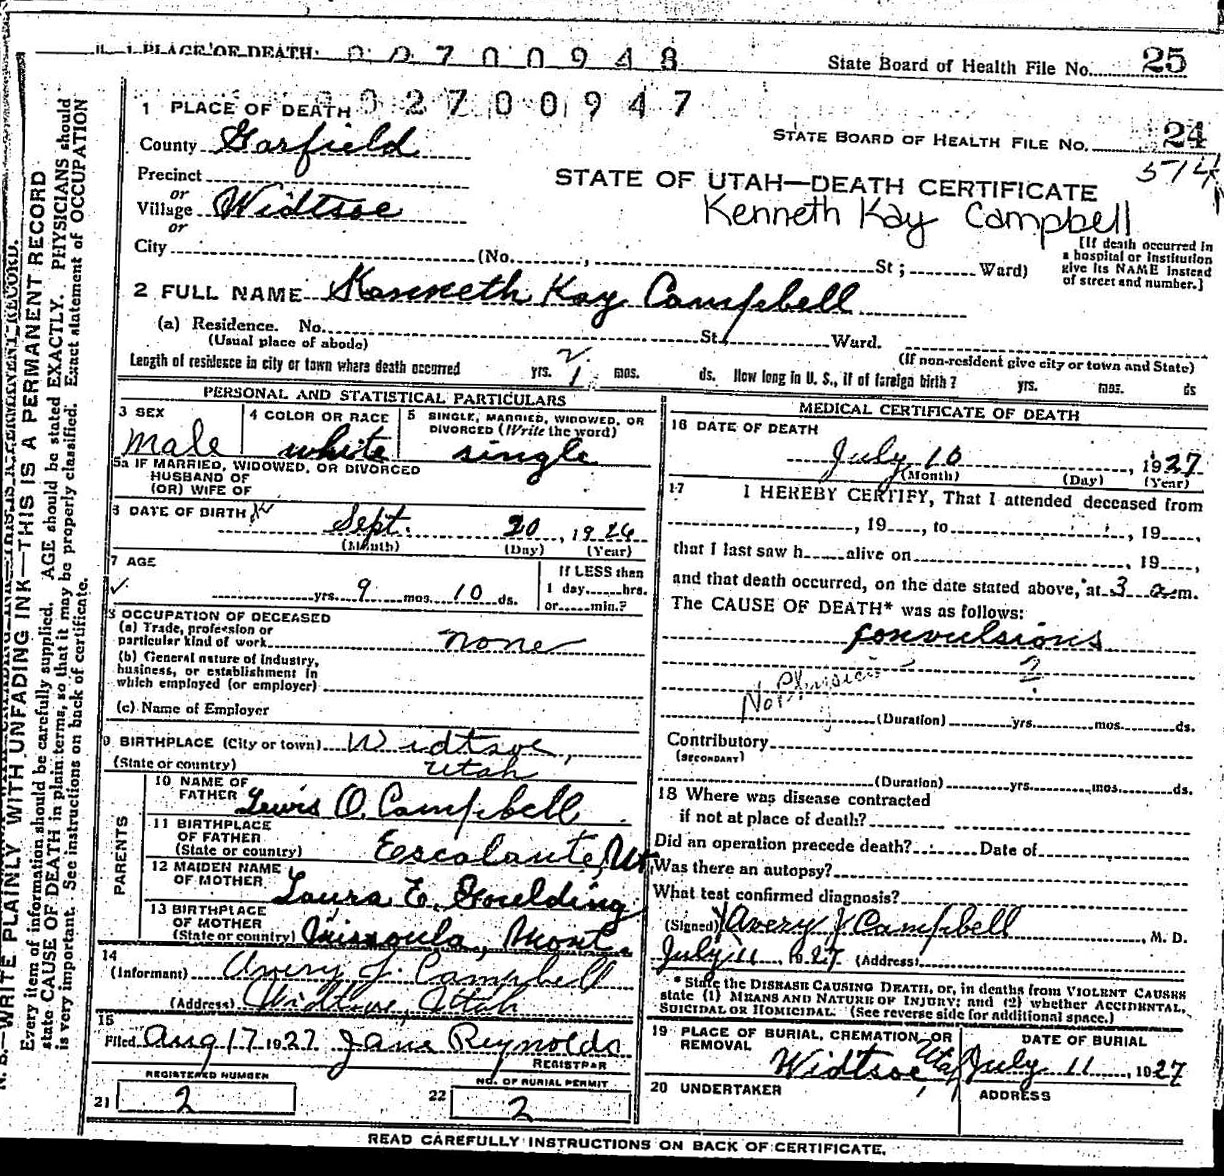 1 PLACE OF DEATH: 0 0 2 7 0 0 9 4 8 State Board of Health File No. 25
1 PLACE OF DEATH 0 0 2 7 0 0 9 4 7
STATE BOARD OF HEALTH FILE NO. 24
5714
County Garfield
Precinct
or
Village Widtsoe
or
City (No. , St ; Ward)
STATE OF UTAH—DEATH CERTIFICATE
Kenneth Kay Campbell
[If death occurred in a hospital or institution give its NAME instead of street and number.]
2 FULL NAME Kenneth Kay Campbell
(a) Residence. No. St., Ward.
(Usual place of abode) (If non-resident give city or town and State)
Length of residence in city or town where death occurred yrs. mos. ds. How long in U. S., if of foreign birth? yrs. mos. ds
PERSONAL AND STATISTICAL PARTICULARS
3 SEX
male
4 COLOR OR RACE
white
5 SINGLE, MARRIED, WIDOWED, OR DIVORCED (Write the word)
single
5a IF MARRIED, WIDOWED, OR DIVORCED
HUSBAND OF
(OR) WIFE OF
6 DATE OF BIRTH
Sept. 20, 1926
(Month) (Day) (Year)
7 AGE
yrs. 9 mos. 10 ds.
If LESS then
1 day,......hrs.
or......min.?
8 OCCUPATION OF DECEASED
(a) Trade, profession or
particular kind of work none
(b) General nature of Industry,
business, or establishment in
which employed (or employer)
(c) Name of Employer
9 BIRTHPLACE (City or town) Widtsoe,
(State or country) Utah
PARENTS
10 NAME OF
FATHER Lewis O. Campbell
11 BIRTHPLACE
OF FATHER
(State or country) Escalante, Ut
12 MAIDEN NAME
OF MOTHER Laura E. Goulding
13 BIRTHPLACE
OF MOTHER
(State or country) Missoula, Mont.
14
(Informant) Avery J. Campbell
(Address) Widtsoe, Utah
15
Filed Aug 17 1927 Jane Reynolds
REGISTRAR
REGISTERED NUMBER
21 2
NO. OF BURIAL PERMIT
22 2
MEDICAL CERTIFICATE OF DEATH
16 DATE OF DEATH
July 10, 1927
(Month) (Day) (Year)
17 I HEREBY CERTIFY, That I attended deceased from
, 19...., to , 19....,
that I last saw h......alive on , 19....,
and that death occurred, on the date stated above, at 3 a.m.
The CAUSE OF DEATH* was as follows:
convulsions
?
No Physician
(Duration) yrs. mos. ds.
Contributory
(SECONDARY)
(Duration) yrs. mos. ds.
18 Where was disease contracted
if not at place of death?
Did an operation precede death? Date of
Was there an autopsy?
What test confirmed diagnosis?
(Signed) Avery J Campbell, M. D.
July 11, 1927 (Address)
* State the DISEASE CAUSING DEATH, or, in deaths from VIOLENT CAUSES
state (1) MEANS AND NATURE OF INJURY; and (2) whether ACCIDENTAL,
SUICIDAL OR HOMICIDAL. (See reverse side for additional space.)
19 PLACE OF BURIAL, CREMATION, OR
REMOVAL
Widtsoe, Utah
DATE OF BURIAL
July 11, 1927
20 UNDERTAKER
ADDRESS
READ CAREFULLY INSTRUCTIONS ON BACK OF CERTIFICATE.
N. B.—WRITE PLAINLY WITH UNFADING INK—THIS IS A PERMANENT RECORD
Every item of information should be carefully supplied. AGE should be stated EXACTLY. PHYSICIANS should
state CAUSE OF DEATH in plain terms, so that it may be properly classified. Exact statement of OCCUPATION
is very important. See instructions on back of certificate.